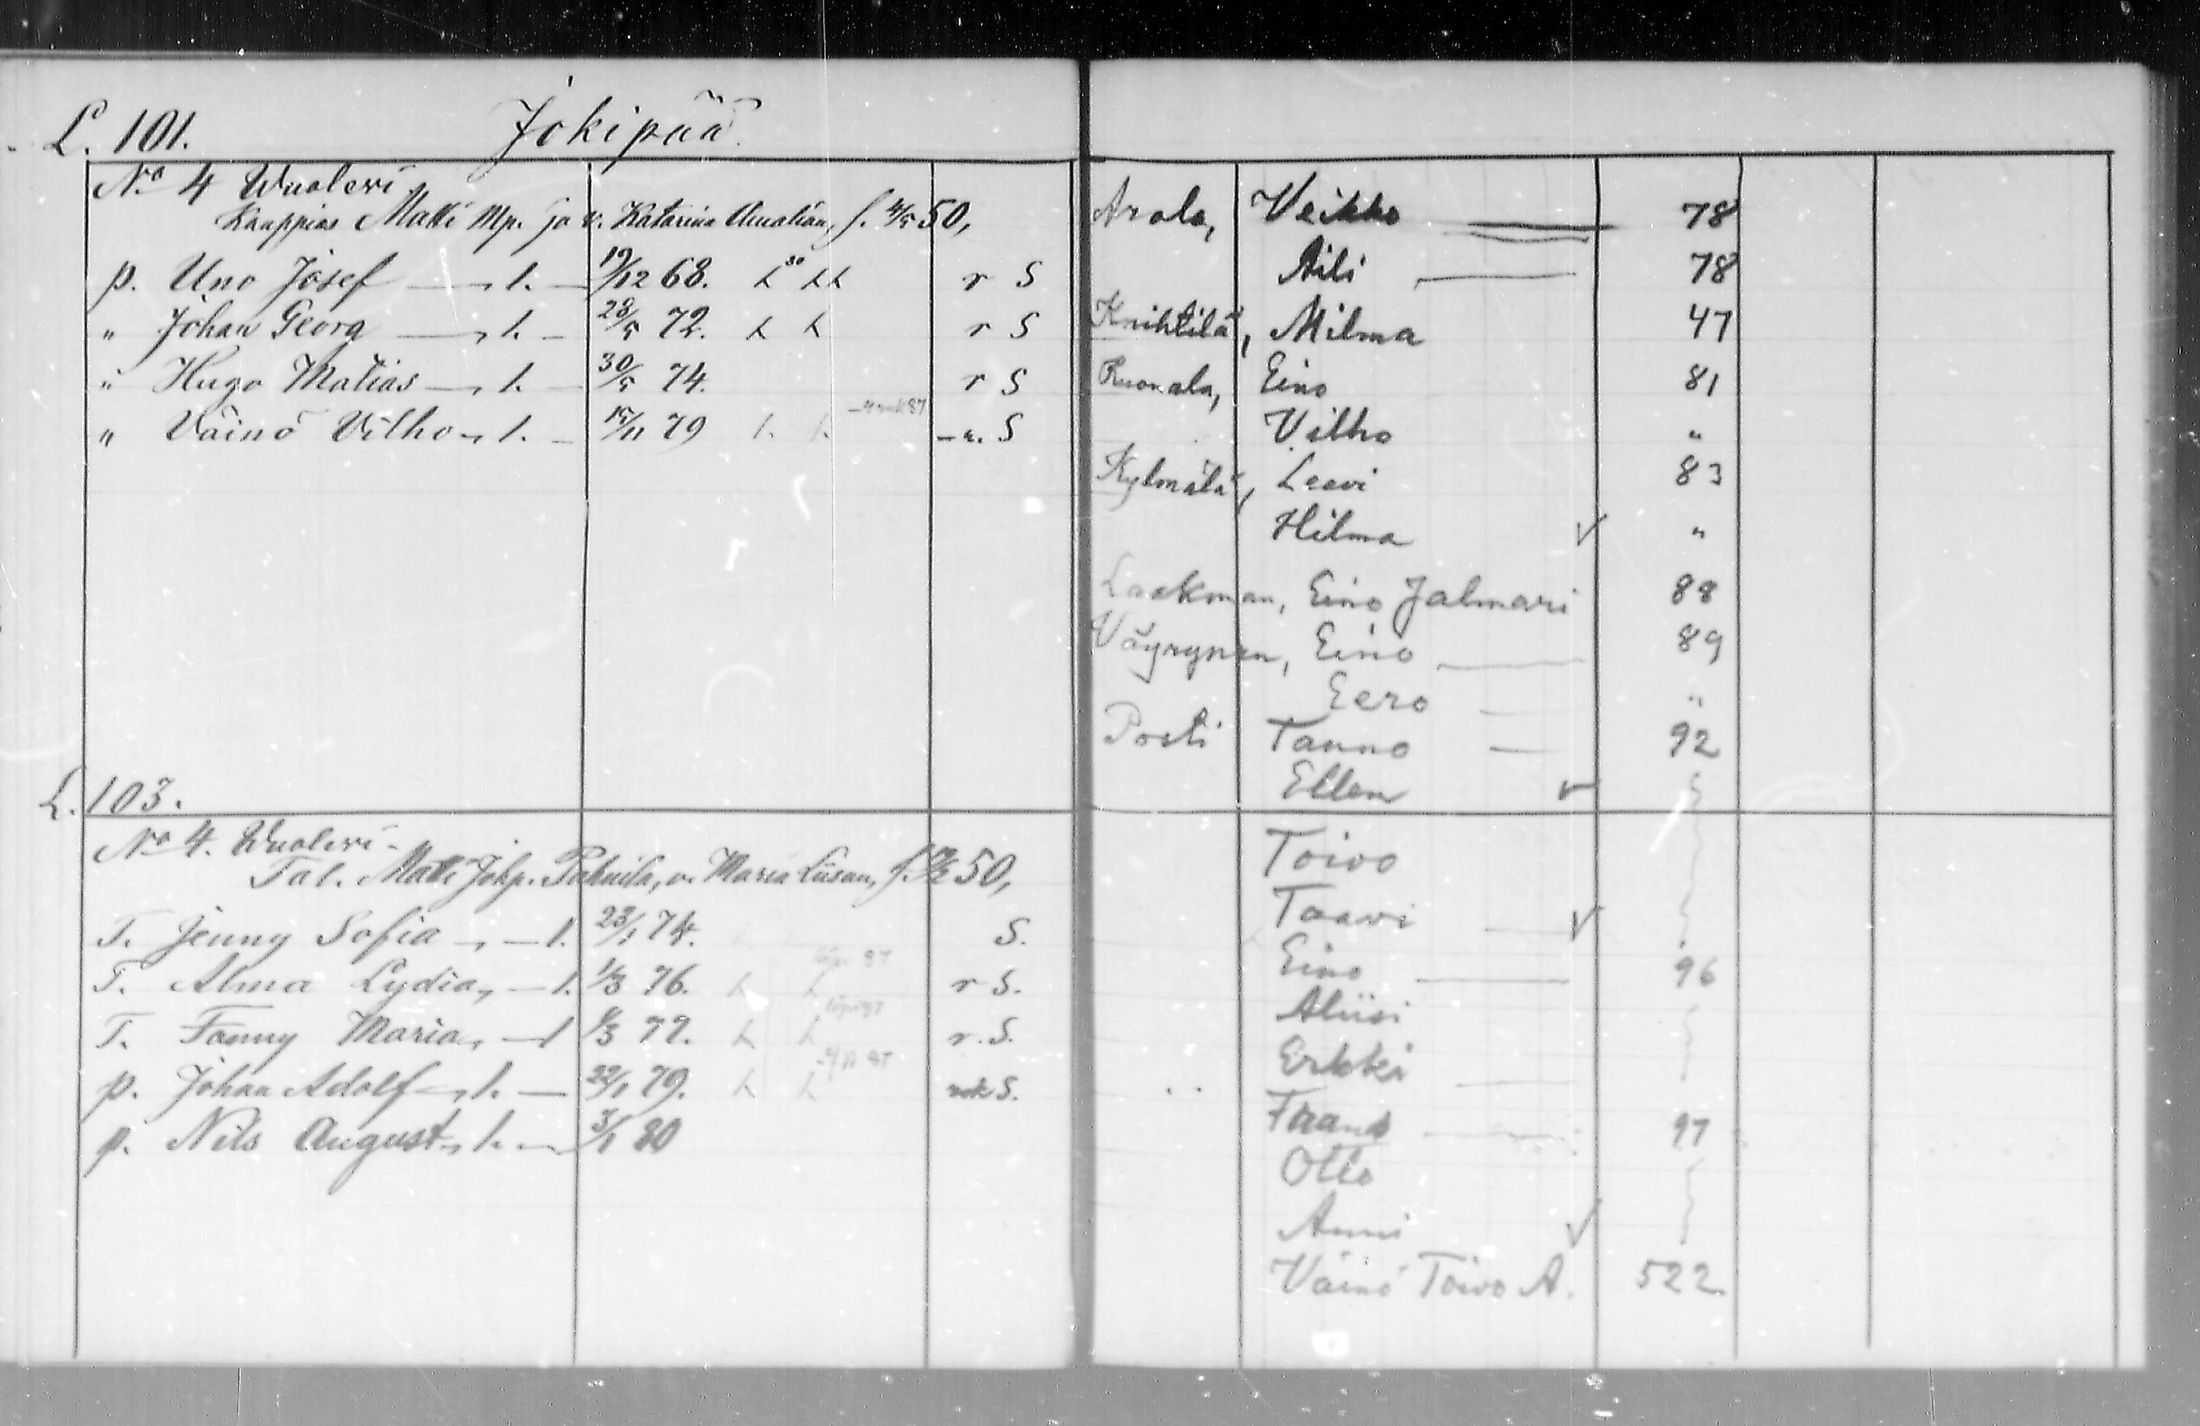 L. 101. Jokipää
No 4 Wuoleri
Kauppias Matti Mp. ja v. Katarina Amalian, f. 4/5 50,
p. Uno Josef 1. 19/12 68. r S
" Johan Georg 1. 28/5 72. r S
" Hugo Matias 1. 30/5 74. r S
" Väinö Vilho 1. 15/11 79 S
L. 103.
No 4. Wuoleri
Tal. Matti Johp. v. Maria Liisan, f. 50,
T. Jenny Sofia 1. 74. S.
T. Alma Lydia, 1. 1/3 76. r S.
T. Fanny Maria, 1 r. S.
p. Johan Adolf 1. 22/1 79. S.
p. Nils August 1. 3/1 80
Arola, Veikko 78
Aili 78
Knihtilä, Milma 47
Ruonala, Eino 81
Vilho "
Kylmälä, Leevi 83
Hilma "
Laakman, Eino Jalmari 88
Väyrynen, Eino 89
Eero "
Posti Tanno 92
Ellen
Toivo
Taavi
Eino 96
Aliisi
Erkki
Frans 97
Otto
Anni
Väinö Toivo A. 522